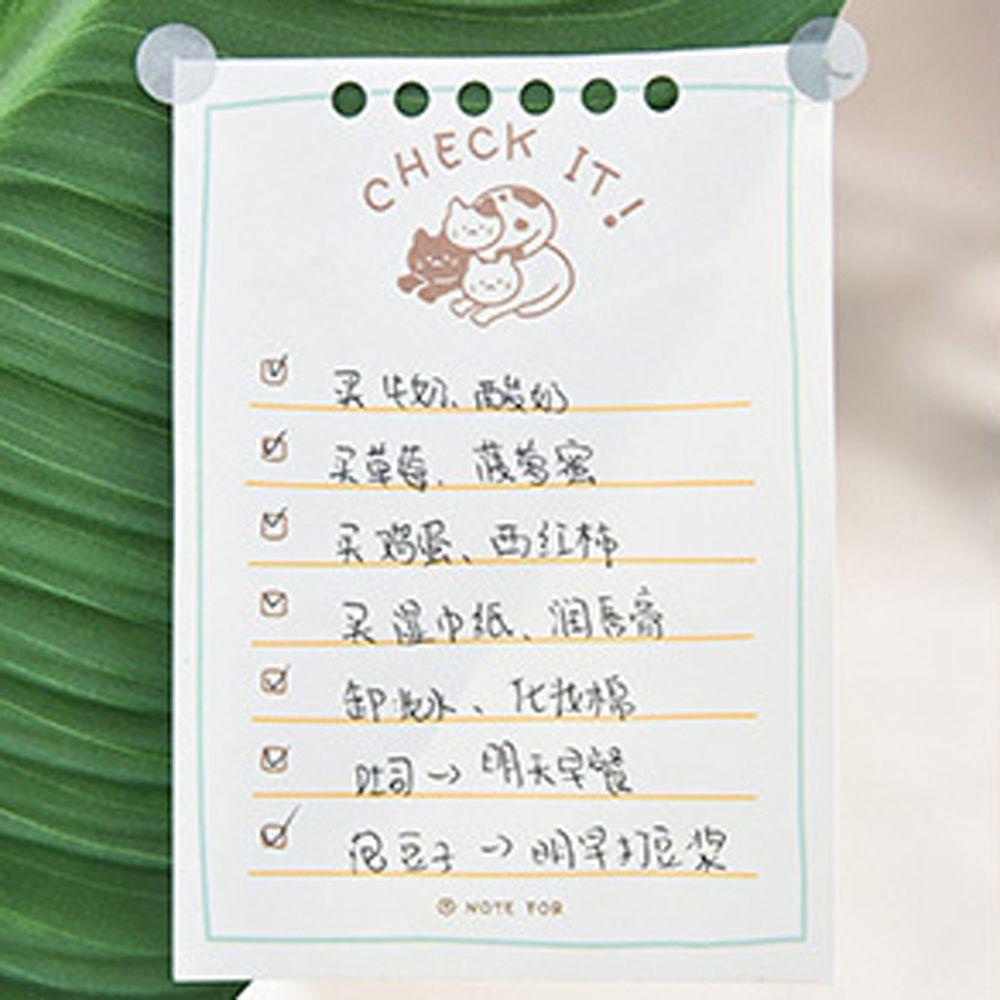 CHECK IT!
买牛奶、酸奶
买草莓、菠萝蜜
买鸡蛋、西红柿
买湿巾纸、润唇膏
卸妆水、化妆棉
吐司→明天早餐
泡豆子→明早打豆浆
NOTE FOR